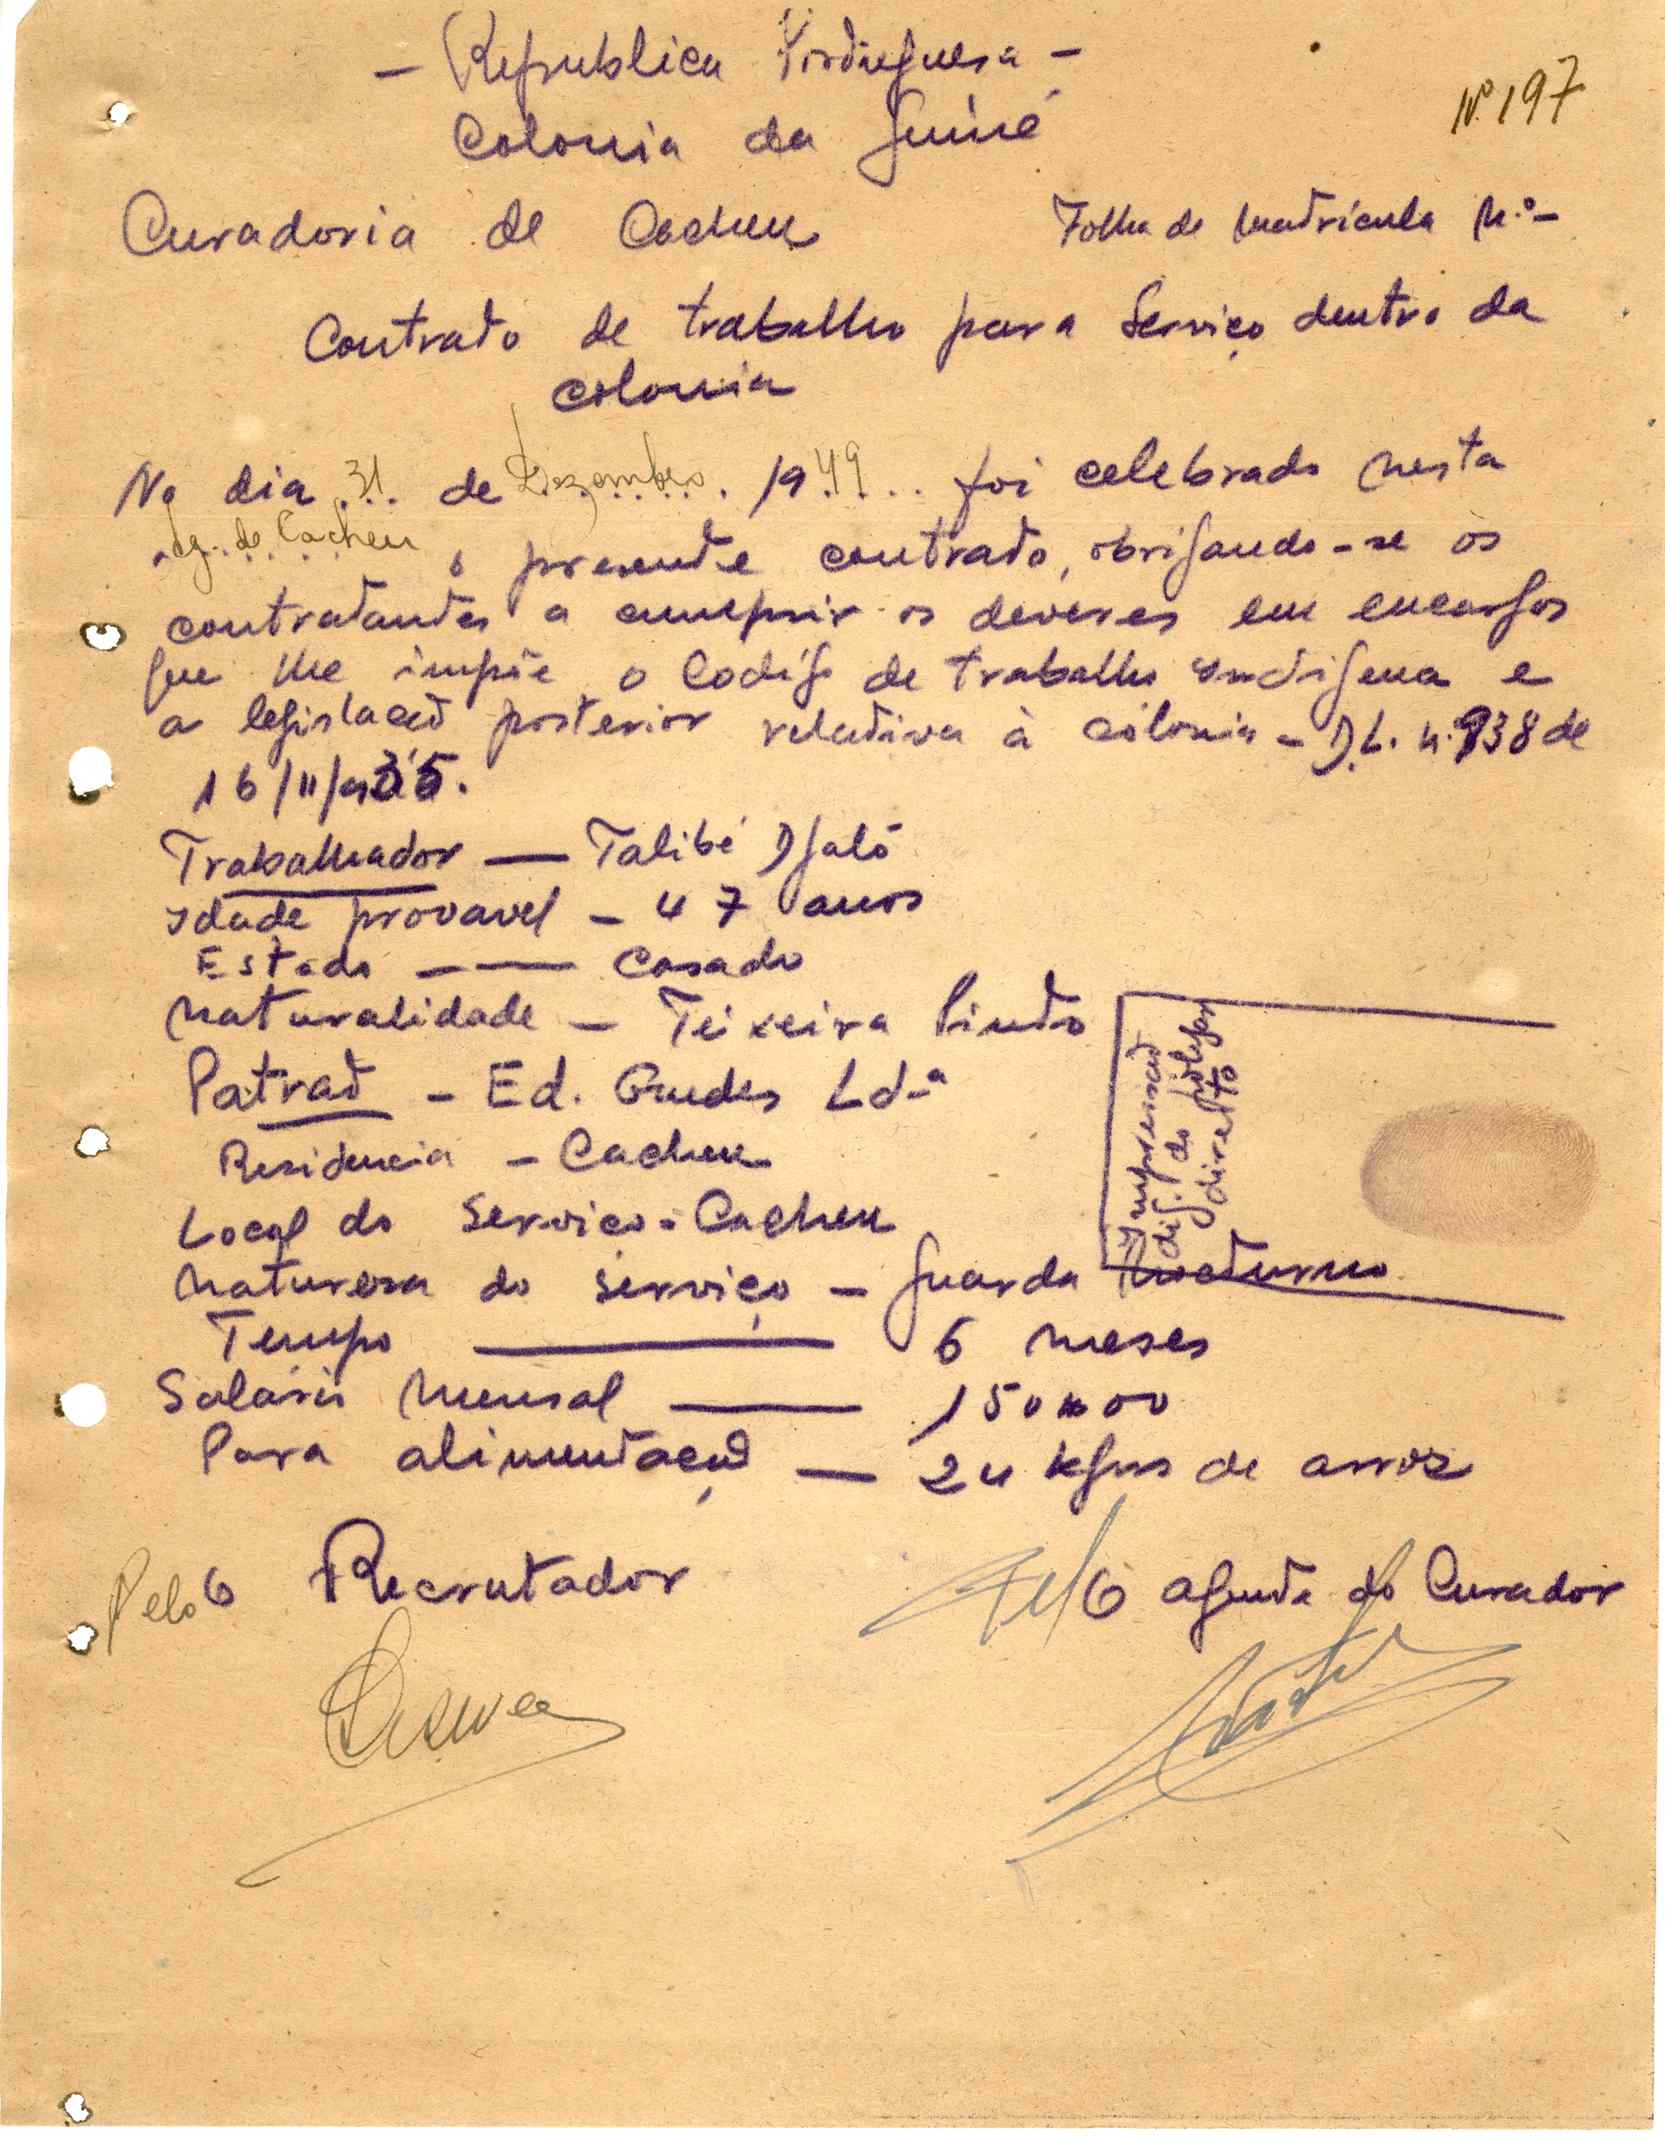 - Republica Portuguesa -
Nº 197
Colonia da Guiné
Curadoria de Cacheu
Folha de matricula N.º -
Contrato de trabalho para Serviço dentro da
colonia
No dia 31 de Dezembro 1949 foi celebrado nesta
de Cacheu o presente contrato, obrigando-se os
contratantes a cumprir os deveres em encargos
que lhe impõe o Codigo de trabalho indigena e
a legislacão posterior relativa à colonia - D.L. n. 938 de
16/11/935.
Trabalhador — Talibé Djaló
Idade provavel - 47 anos
Estado — Casado
Naturalidade - Teixeira Pinto
Patrão - Ed. Guedes Ld.ª
Residencia - Cacheu
Local do Serviço - Cacheu
Impressão
dig. do polegar
direito
Naturesa do serviço - Guarda Nocturno
Tempo — 6 meses
Salário Mensal — 150$00
Para alimentação — 24 kgms de arroz
Pelo O Recrutador
Pel O Agente do Curador